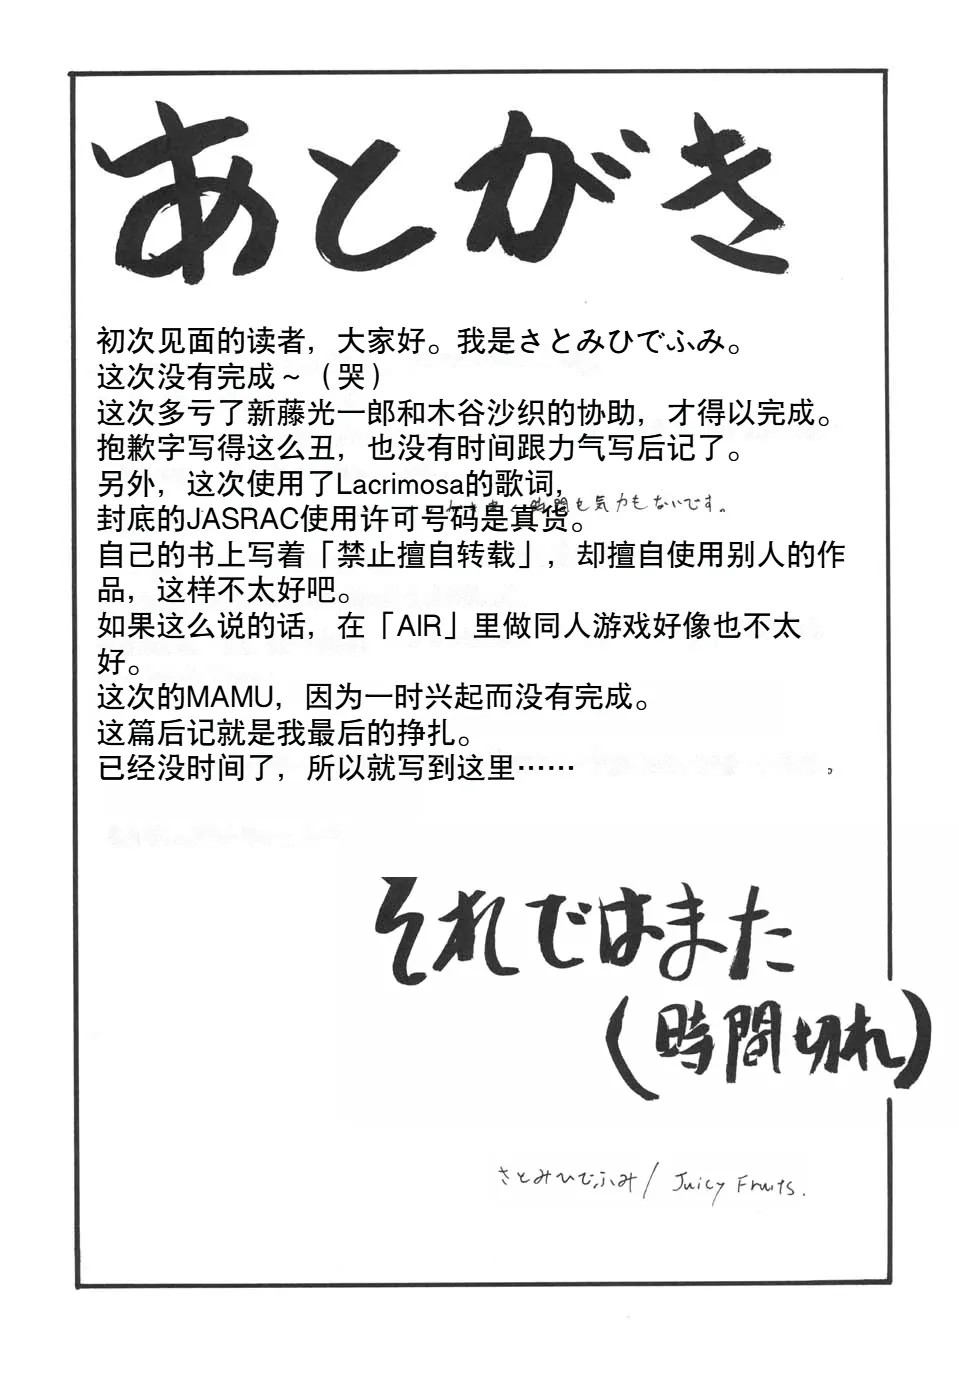 あとがき
初次见面的读者，大家好。我是さとみひでふみ。
这次没有完成～（哭）
这次多亏了新藤光一郎和木谷沙织的协助，才得以完成。
抱歉字写得这么丑，也没有时间跟力气写后记了。
另外，这次使用了Lacrimosa的歌词，
時間も気力もないです。
封底的JASRAC使用许可号码是真货。
自己的书上写着「禁止擅自转载」，却擅自使用别人的作
品，这样不太好吧。
如果这么说的话，在「AIR」里做同人游戏好像也不太
好。
这次的MAMU，因为一时兴起而没有完成。
这篇后记就是我最后的挣扎。
已经没时间了，所以就写到这里……
それではまた
（時間切れ）
さとみひでふみ/ Juicy Fruits.